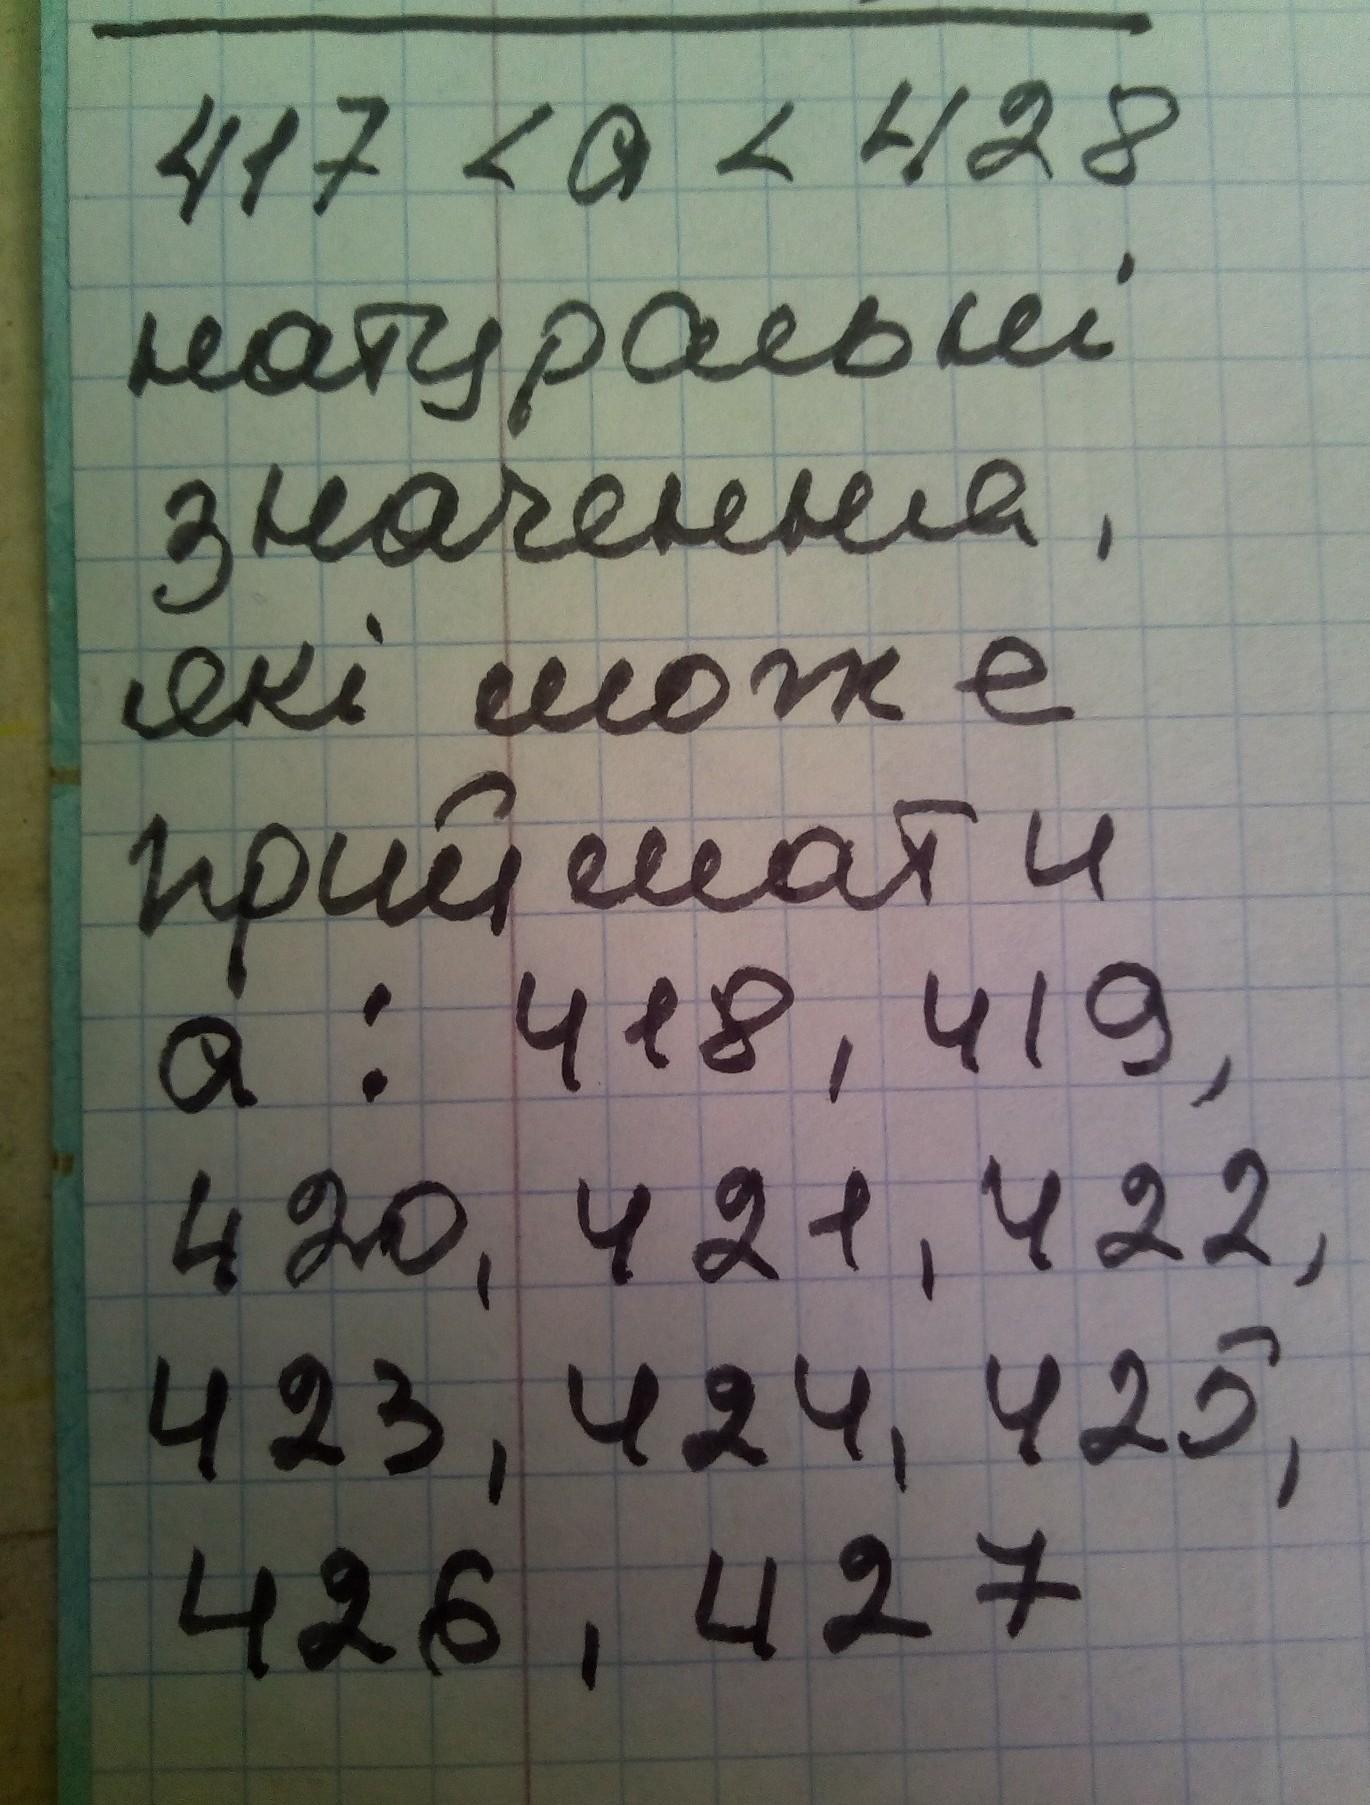 417 < a < 428
натуральні
значення,
які може
приймати
a : 418, 419,
420, 421, 422,
423, 424, 425,
426, 427